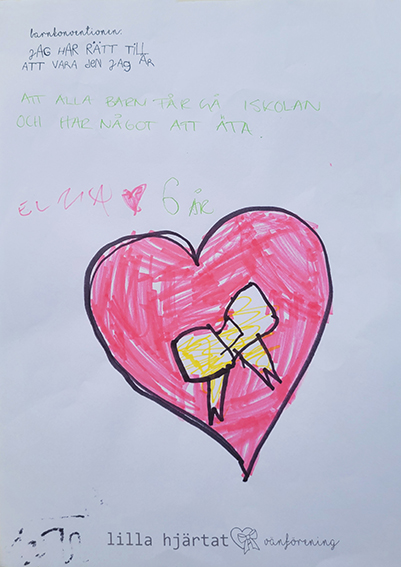 barnkonventionen.
JAG HAR RÄTT TILL
ATT VARA DEN JAG ÄR
ATT ALLA BARN FÅR GÅ ISKOLAN
OCH HAR NÅGOT ATT ÄTA.
ELMA 6 ÅR
lilla hjärtat vänförening